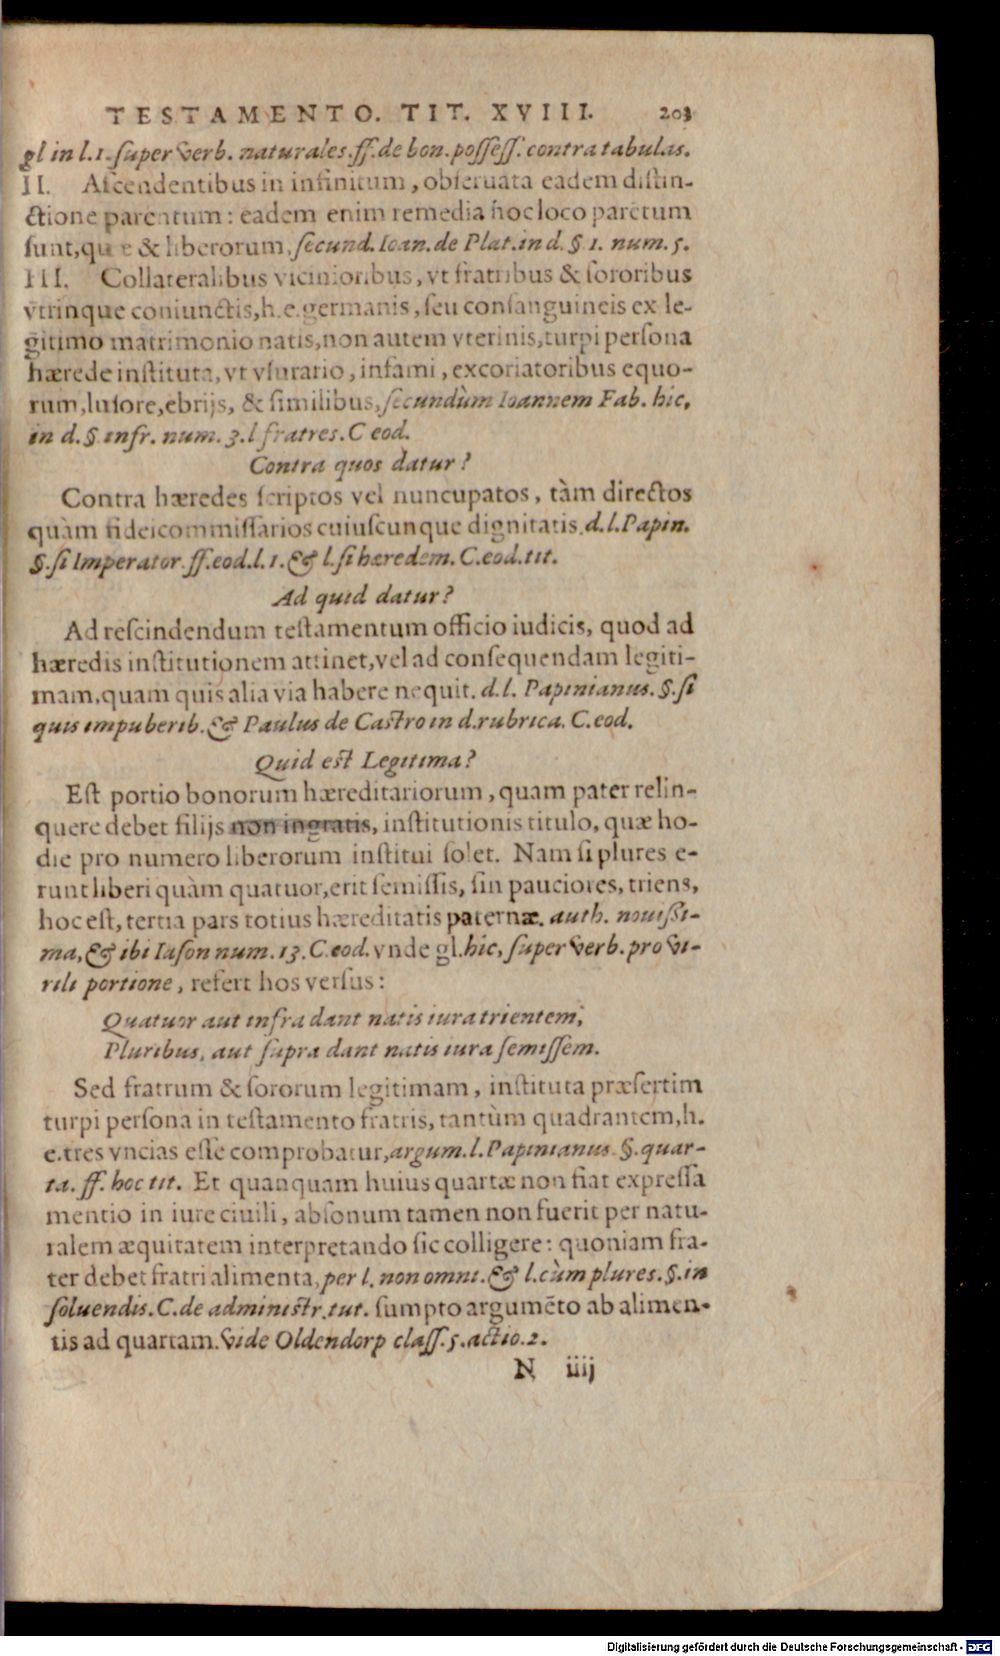 TESTAMENTO. TIT. XVIII. 203
gl in l. 1. super verb. naturales. ff. de bon. possess. contra tabulas.
II. Ascendentibus in infinitum, obseruata eadem distin-
ctione parentum: eadem enim remedia hoc loco parētum
sunt, quæ & liberorum, secund. Ioan. de Plat. in d. §. 1. num. 5.
III. Collateralibus vicinioribus, vt fratribus & sororibus
vtrinque coniunctis, h. e. germanis, seu consanguineis ex le-
gitimo matrimonio natis, non autem vterinis, turpi persona
hærede instituta, vt vsurario, infami, excoriatoribus equo-
rum, lusore, ebrijs, & similibus, secundùm Ioannem Fab. hic,
in d. §. infr. num. 3. l fratres. C eod.
Contra quos datur?
Contra hæredes scriptos vel nuncupatos, tàm directos
quàm fideicommissarios cuiuscunque dignitatis. d. l. Papin.
§. si Imperator. ff. eod. l. 1. & l. si hæredem. C. eod. tit.
Ad quid datur?
Ad rescindendum testamentum officio iudicis, quod ad
hæredis institutionem attinet, vel ad consequendam legiti-
mam, quam quis alia via habere nequit. d. l. Papinianus. §. si
quis impuberib. & Paulus de Castro in d. rubrica. C. eod.
Quid est Legitima?
Est portio bonorum hæreditariorum, quam pater relin-
quere debet filijs non ingratis, institutionis titulo, quæ ho-
die pro numero liberorum institui solet. Nam si plures e-
runt liberi quàm quatuor, erit semissis, sin pauciores, triens,
hoc est, tertia pars totius hæreditatis paternæ. auth. nouissi-
ma, & ibi Iason num. 13. C. eod. vnde gl. hic, super verb. pro vi-
rili portione, refert hos versus:
Quatuor aut infra dant natis iura trientem,
Pluribus, aut supra dant natis iura semissem.
Sed fratrum & sororum legitimam, instituta præsertim
turpi persona in testamento fratris, tantùm quadrantem, h.
e. tres vncias esse comprobatur, argum. l. Papinianus. §. quar-
ta. ff. hoc tit. Et quanquam huius quartæ non fiat expressa
mentio in iure ciuili, absonum tamen non fuerit per natu-
ralem æquitatem interpretando sic colligere: quoniam fra-
ter debet fratri alimenta, per l. non omni. & l. cùm plures. §. in
soluendis. C. de administr. tut. sumpto argumēto ab alimen-
tis ad quartam. vide Oldendorp class. 5. actio. 2.
N iiij
Digitalisierung gefördert durch die Deutsche Forschungsgemeinschaft - DFG